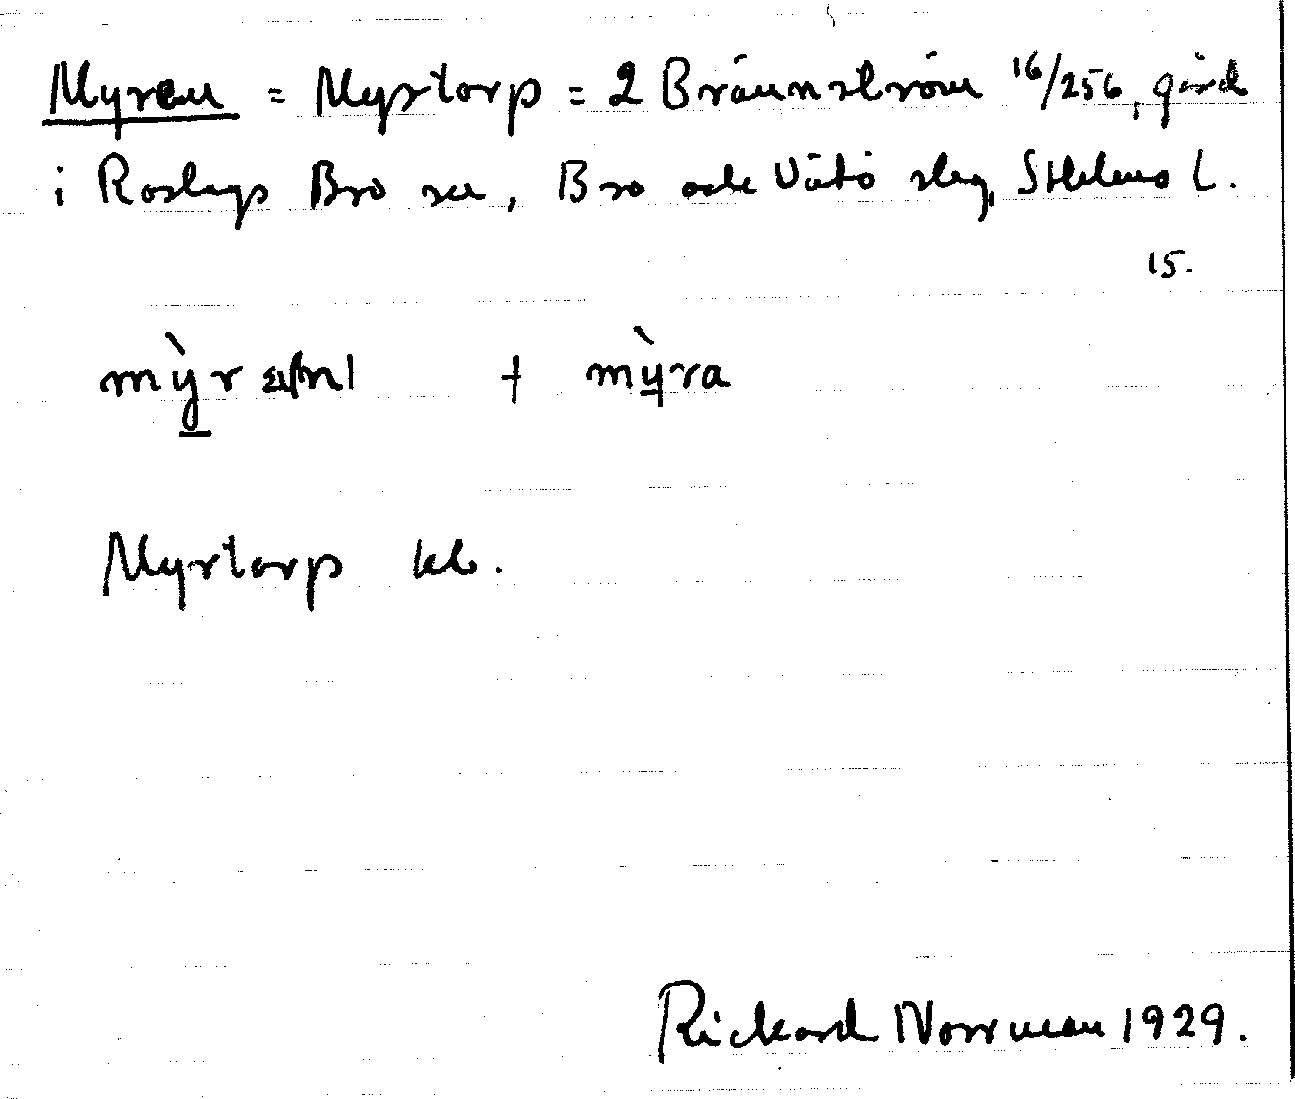 Myren = Myrtorp = 2 Brännström 16/256, gård
i Roslags Bro sn, Bro och Vätö slag, Sthlms L.
15.
mỳr + mỳra
Myrtorp kb.
Rickard Norrman 1929.